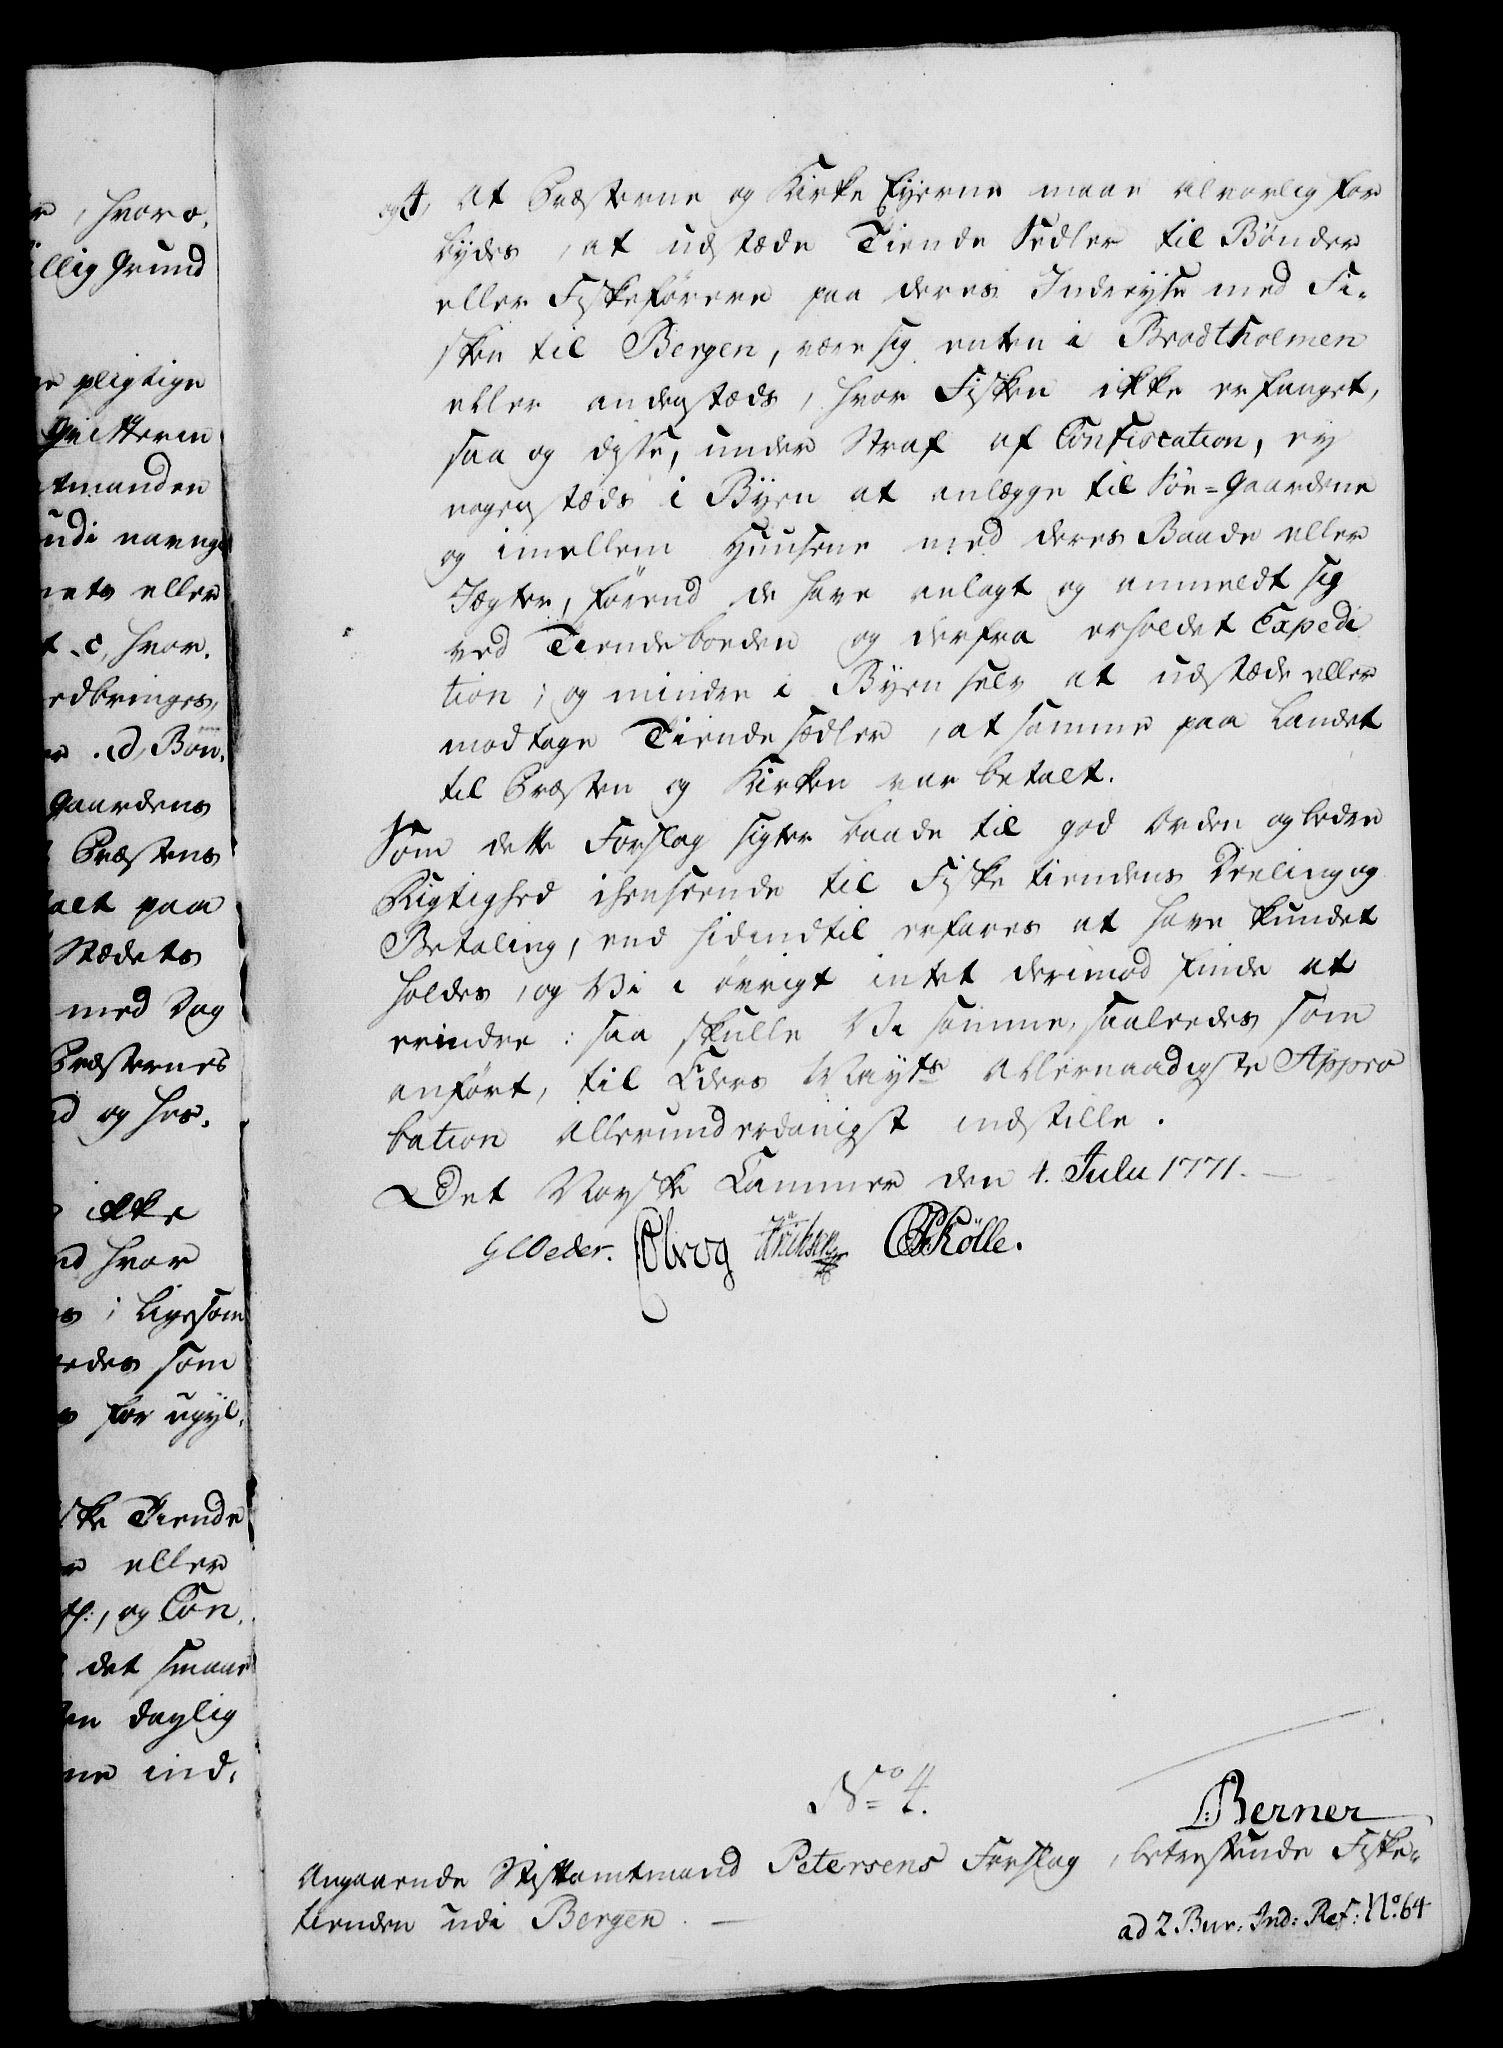 r, hvora,
llig Grund
re pligtige
Qvitterin
tmanden
udi navng
nets eller
t. c, hvor,
edbringes,
er. d, Bon,
Gaardens
Præstens
alt paa
Stædets
med Dag
Præsternes
d og hos,
ikke
nd hvor
s; ligesom
ledes som
s for ugyl,
ske Tiende
r eller
og Con,
det smaae
en daglig
ne ind,
og 4, At Præsterne og Kirke Eyerne maae alvorlig for
bydes, at udstæde Tiende Sedler til Bønder
eller Fiskeførere paa deres Indreyse med Fi-
sken til Bergen, være sig enten i Bradtholmen
eller andenstæds, hvor Fisken ikke er fanget,
saa og disse, under Straf af Confiscation, ey
nogenstæds i Byen at anlægge til Søe-Gaardene
og imellem Huusene med deres Baade eller
Jægter, førend de have anlagt og anmeldt sig
ved Tiendeboeden og derfra erholdet Expedi
tion; og mindre i Byen selv at udstæde eller
modtage Tiende sedler, at samme paa Landet
til Præsten og Kirken var betalt.
Som dette Forslag sigter baade til god Orden og bedre
Rigtighed ihenseende til Fiske tiendens Deeling og
Betaling, end hidindtil erfares at have kundet
holdes, og Vi i øvrigt intet derimod finde at
erindre: saa skulle Vi samme, saaledes som
anført, til Eders Mayts Allernaadigste Appro
bation Allerunderdanigst indstille.
Det Norske Cammer den 4. Julii 1771.
G C Oeder. Eriksen CPRölle.
No 4.
L: Berner
Angaaende Stiftamtmand Petersens Forslag, betreffende Fiske-
tienden udi Bergen. —
ad 2 Bur: Ind: Ref: No. 64